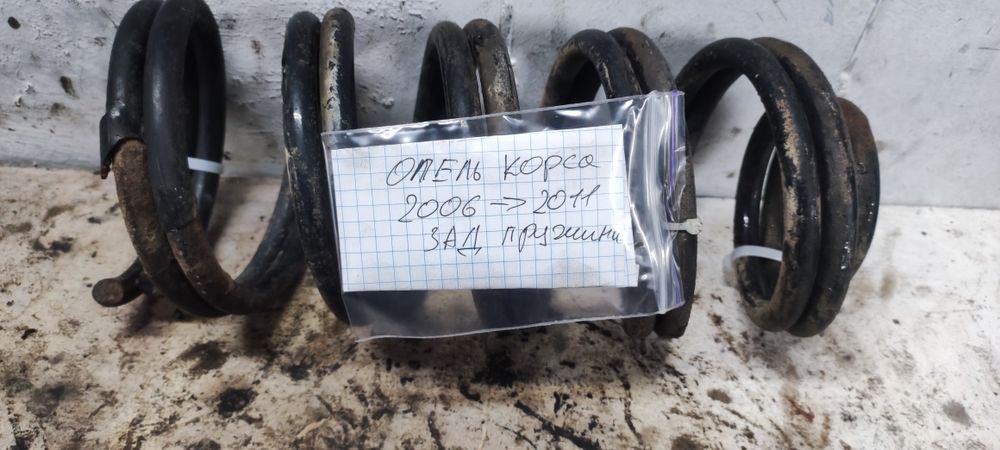 ОПЕЛЬ КОРСА
2006 → 2011
ЗАД пружини